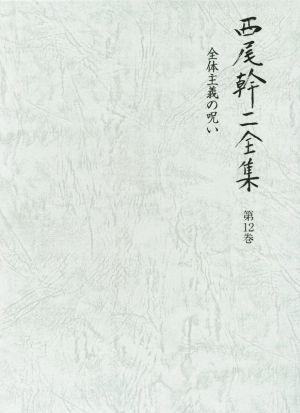 西尾幹二全集
第12巻
全体主義の呪い